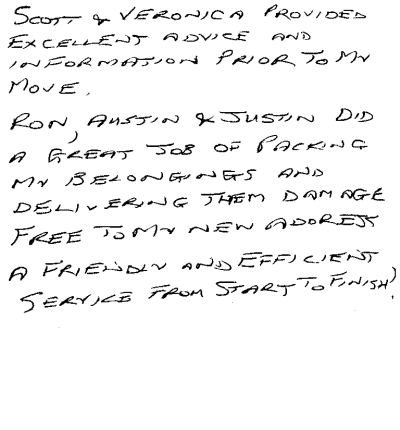 SCOTT & VERONICA PROVIDED
EXCELLENT ADVICE AND
INFORMATION PRIOR TO MY
MOVE.
RON, AUSTIN & JUSTIN DID
A GREAT JOB OF PACKING
MY BELONGINGS AND
DELIVERING THEM DAMAGE
FREE TO MY NEW ADDRESS
A FRIENDLY AND EFFICIENT
SERVICE FROM START TO FINISH!